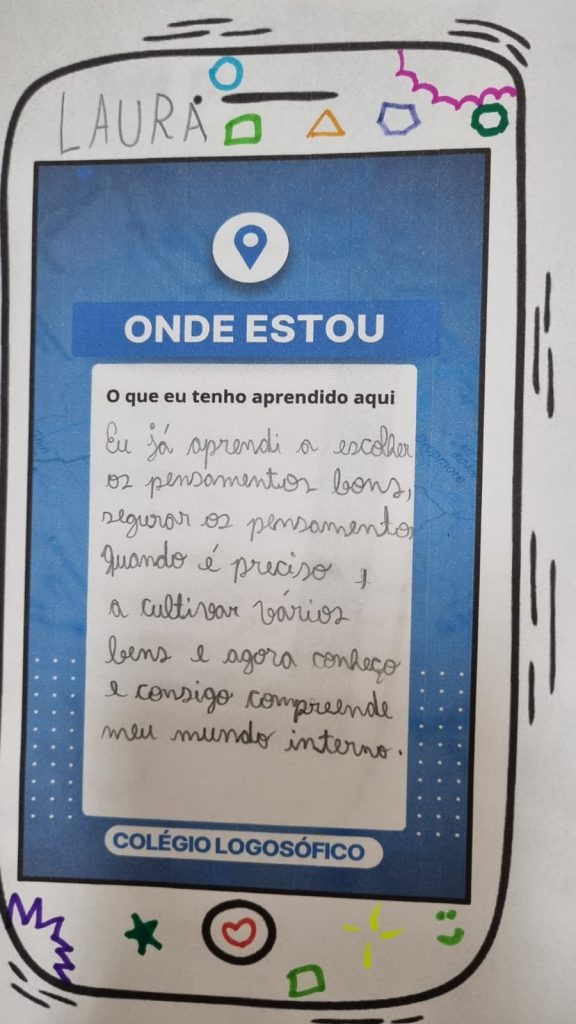 LAURA
ONDE ESTOU
O que eu tenho aprendido aqui
Eu já aprendi a escolher
os pensamentos bons,
segurar os pensamentos
quando é preciso,
a cultivar vários
bens e agora conheço
e consigo compreende
meu mundo interno.
COLÉGIO LOGOSÓFICO